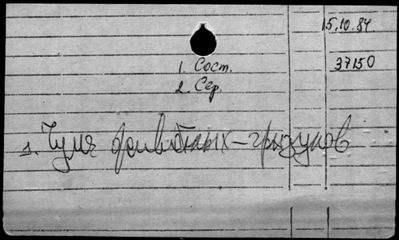 15.10.84
37150
1. Сост.
2. Сер.
1. Чума животных-грызунов